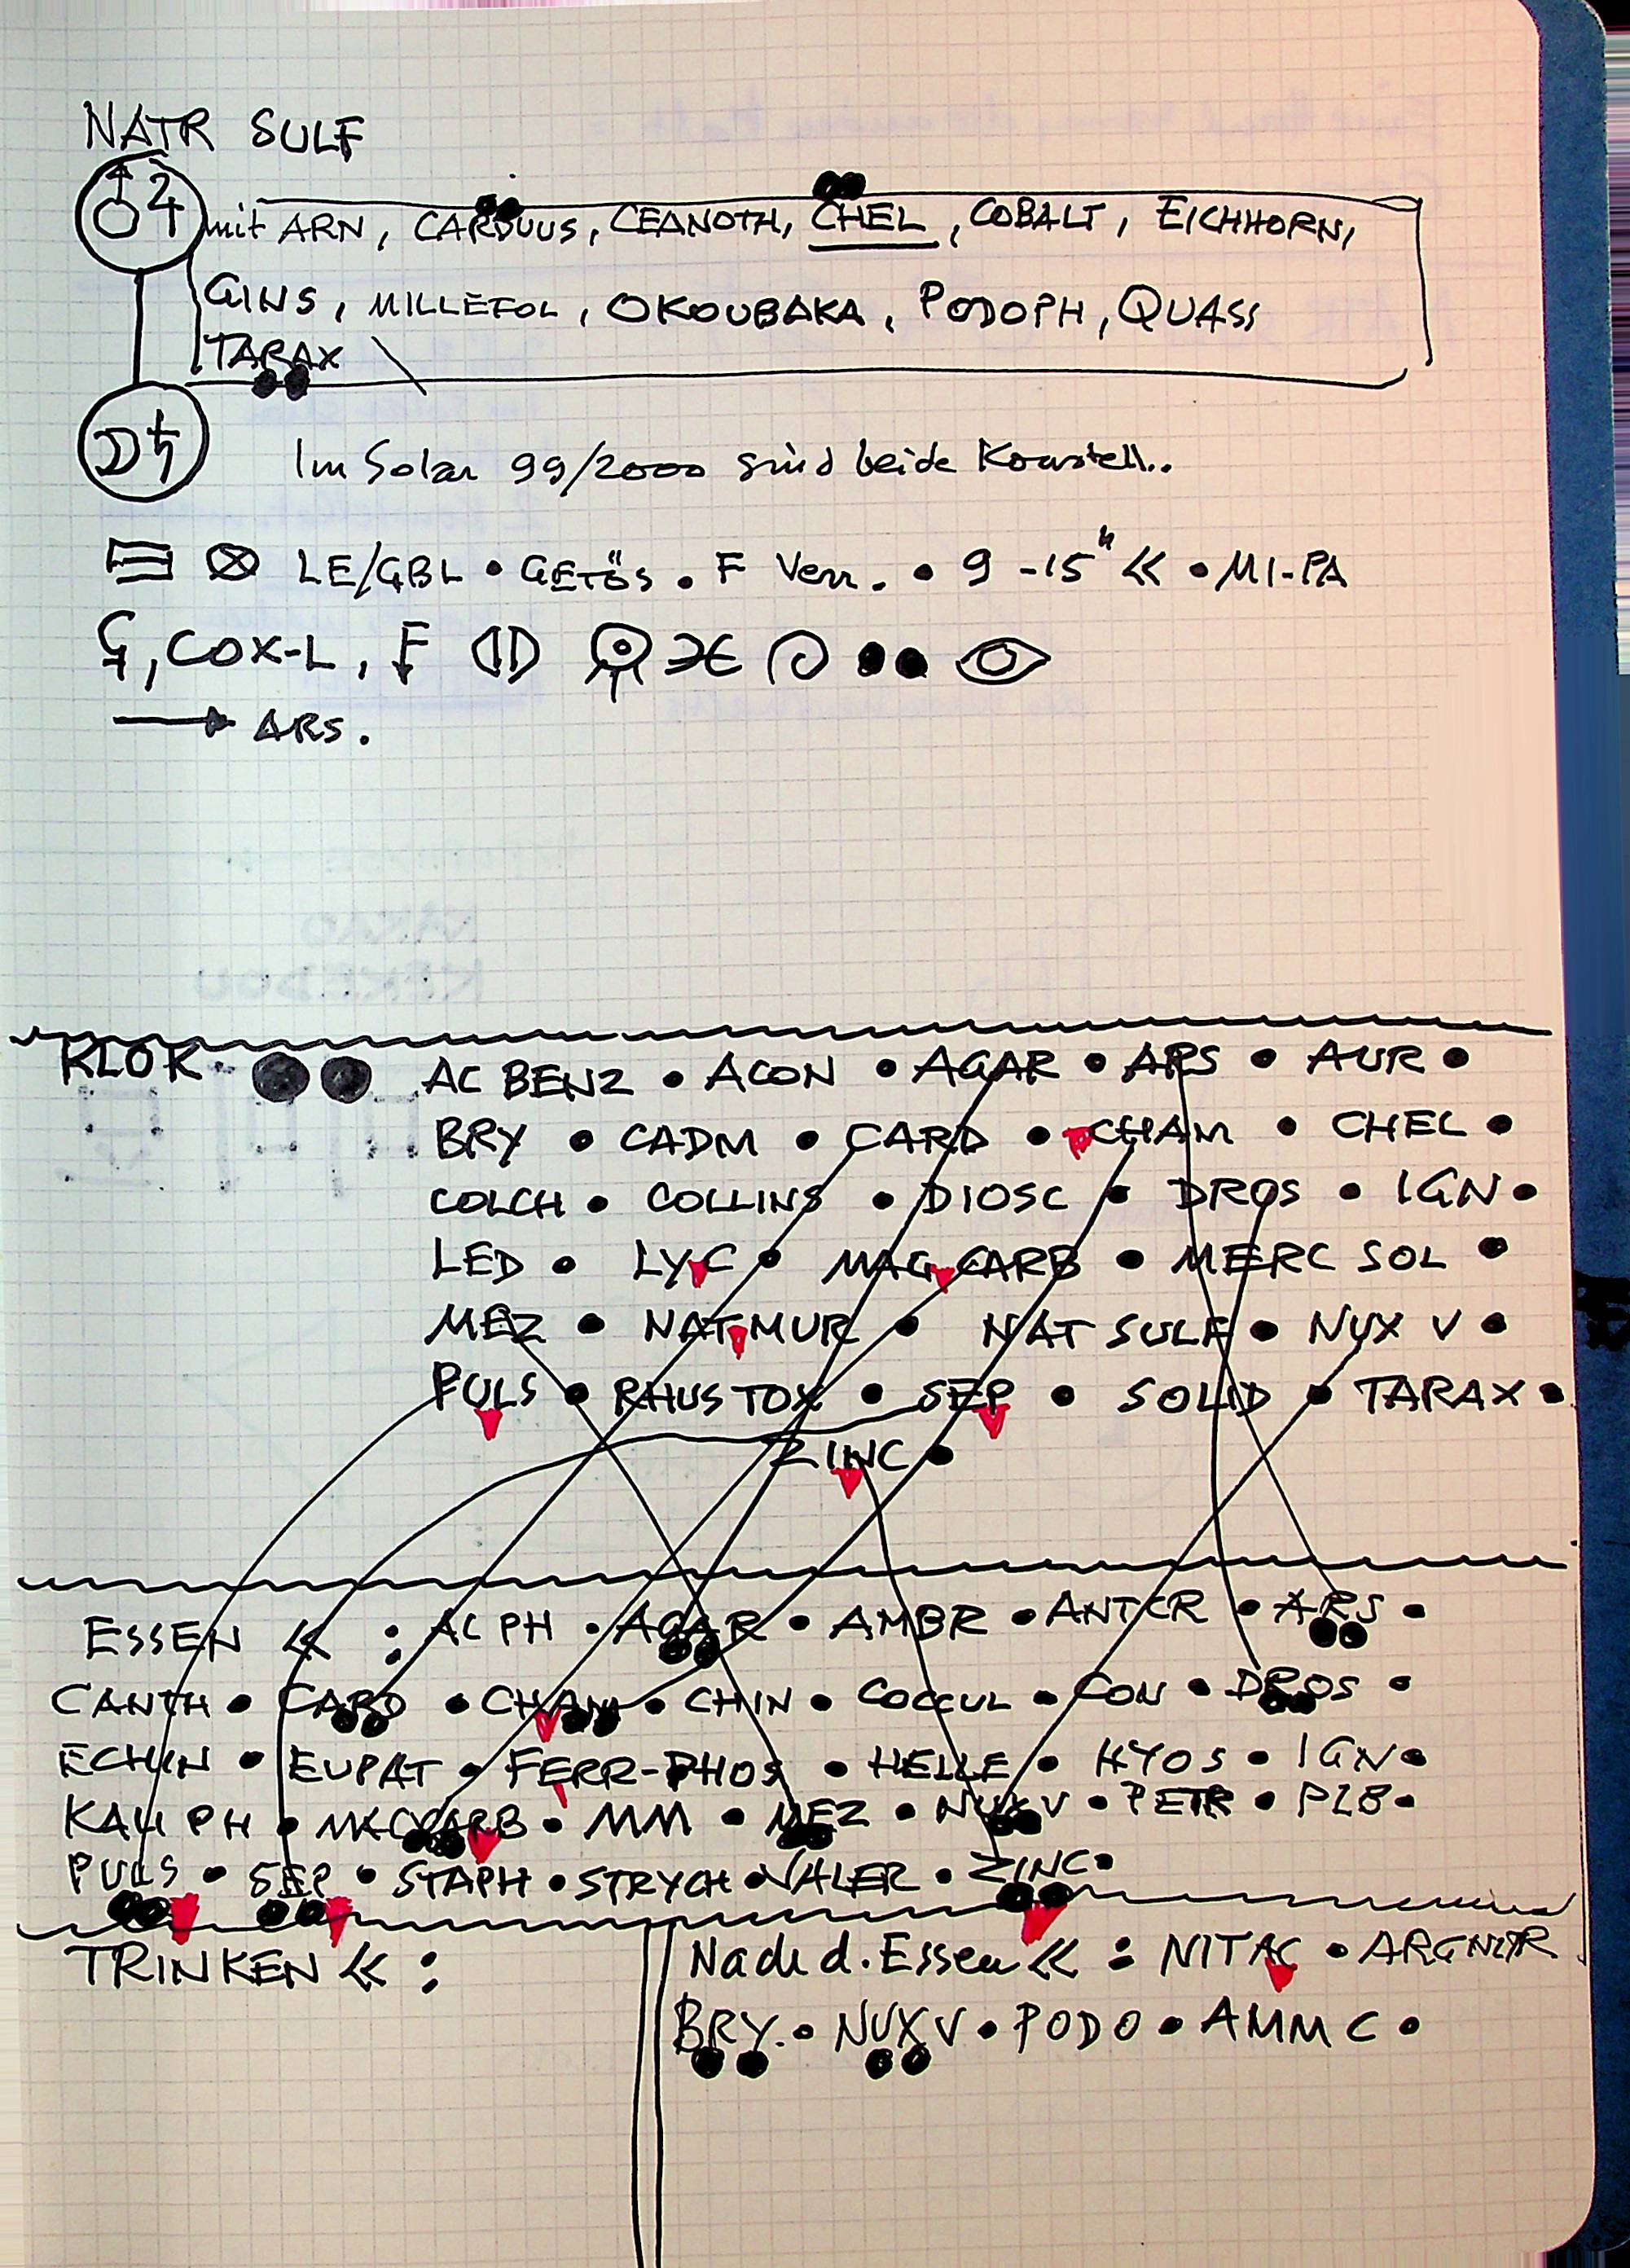 NATR SULF
♂♃ mit ARN, CARDUUS, CEANOTH, CHEL, COBALT, EICHHORN,
GINS, MILLEFOL, OKOUBAKA, PODOPH, QUASS
TARAX
☽♄ Im Solar 99/2000 sind beide Konstell..
LE/GBL • GETÖS • F Verr. • 9 -15ʰ << • MI-PA
, COX-L, F
→ ARS.
KLOK. ●● AC BENZ • ACON • AGAR • ARS • AUR •
BRY • CADM • CARD • CHAM • CHEL •
COLCH • COLLINS • DIOSC • DROS • IGN •
LED • LYC • MAG CARB • MERC SOL •
MEZ • NAT MUR • NAT SULF • NUX V •
PULS • RHUS TOX • SEP • SOLID • TARAX •
ZINC •
ESSEN << : AC PH • AGAR • AMBR • ANTCR • ARS •
CANTH • CARD • CHAM • CHIN • COCCUL • CON • DROS •
ECHIN • EUPAT • FERR-PHOS • HELLE • HYOS • IGN •
KALI PH • CARB • MM • MEZ • NUX V • PETR • PLB •
PULS • SEP • STAPH • STRYCH • VALER • ZINC •
TRINKEN << :
Nach d. Essen << : NITAC • ARGNITR
BRY. • NUX V • PODO • AMM C •